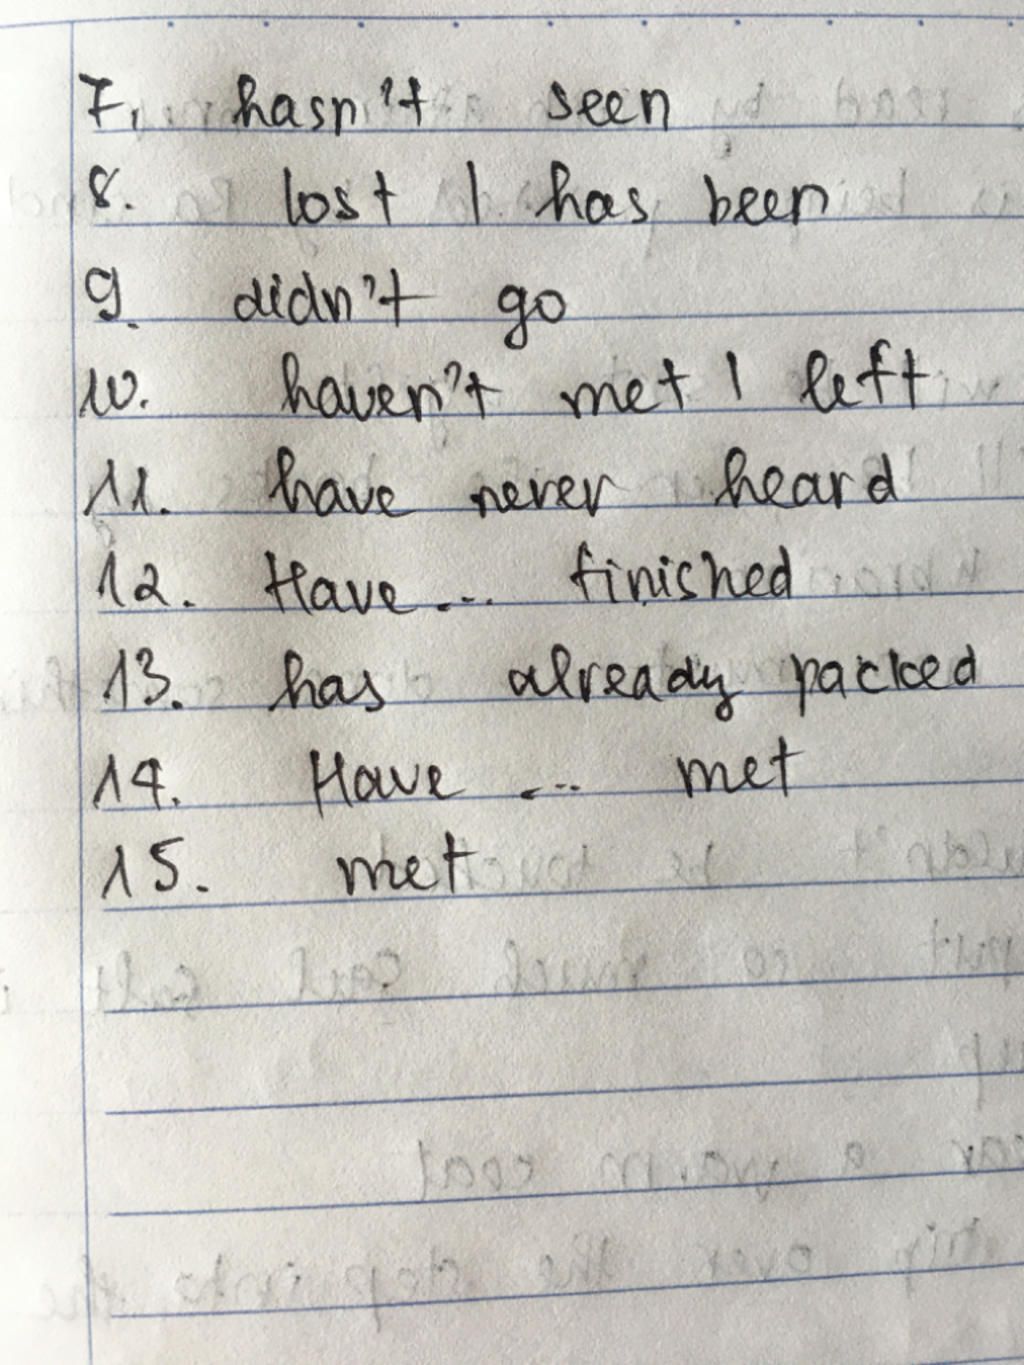 7, hasn't seen
8. lost | has been
9. didn't go
10. haven't met | left
11. have never heard
12. Have... finished
13. has already packed
14. Have ... met
15. met